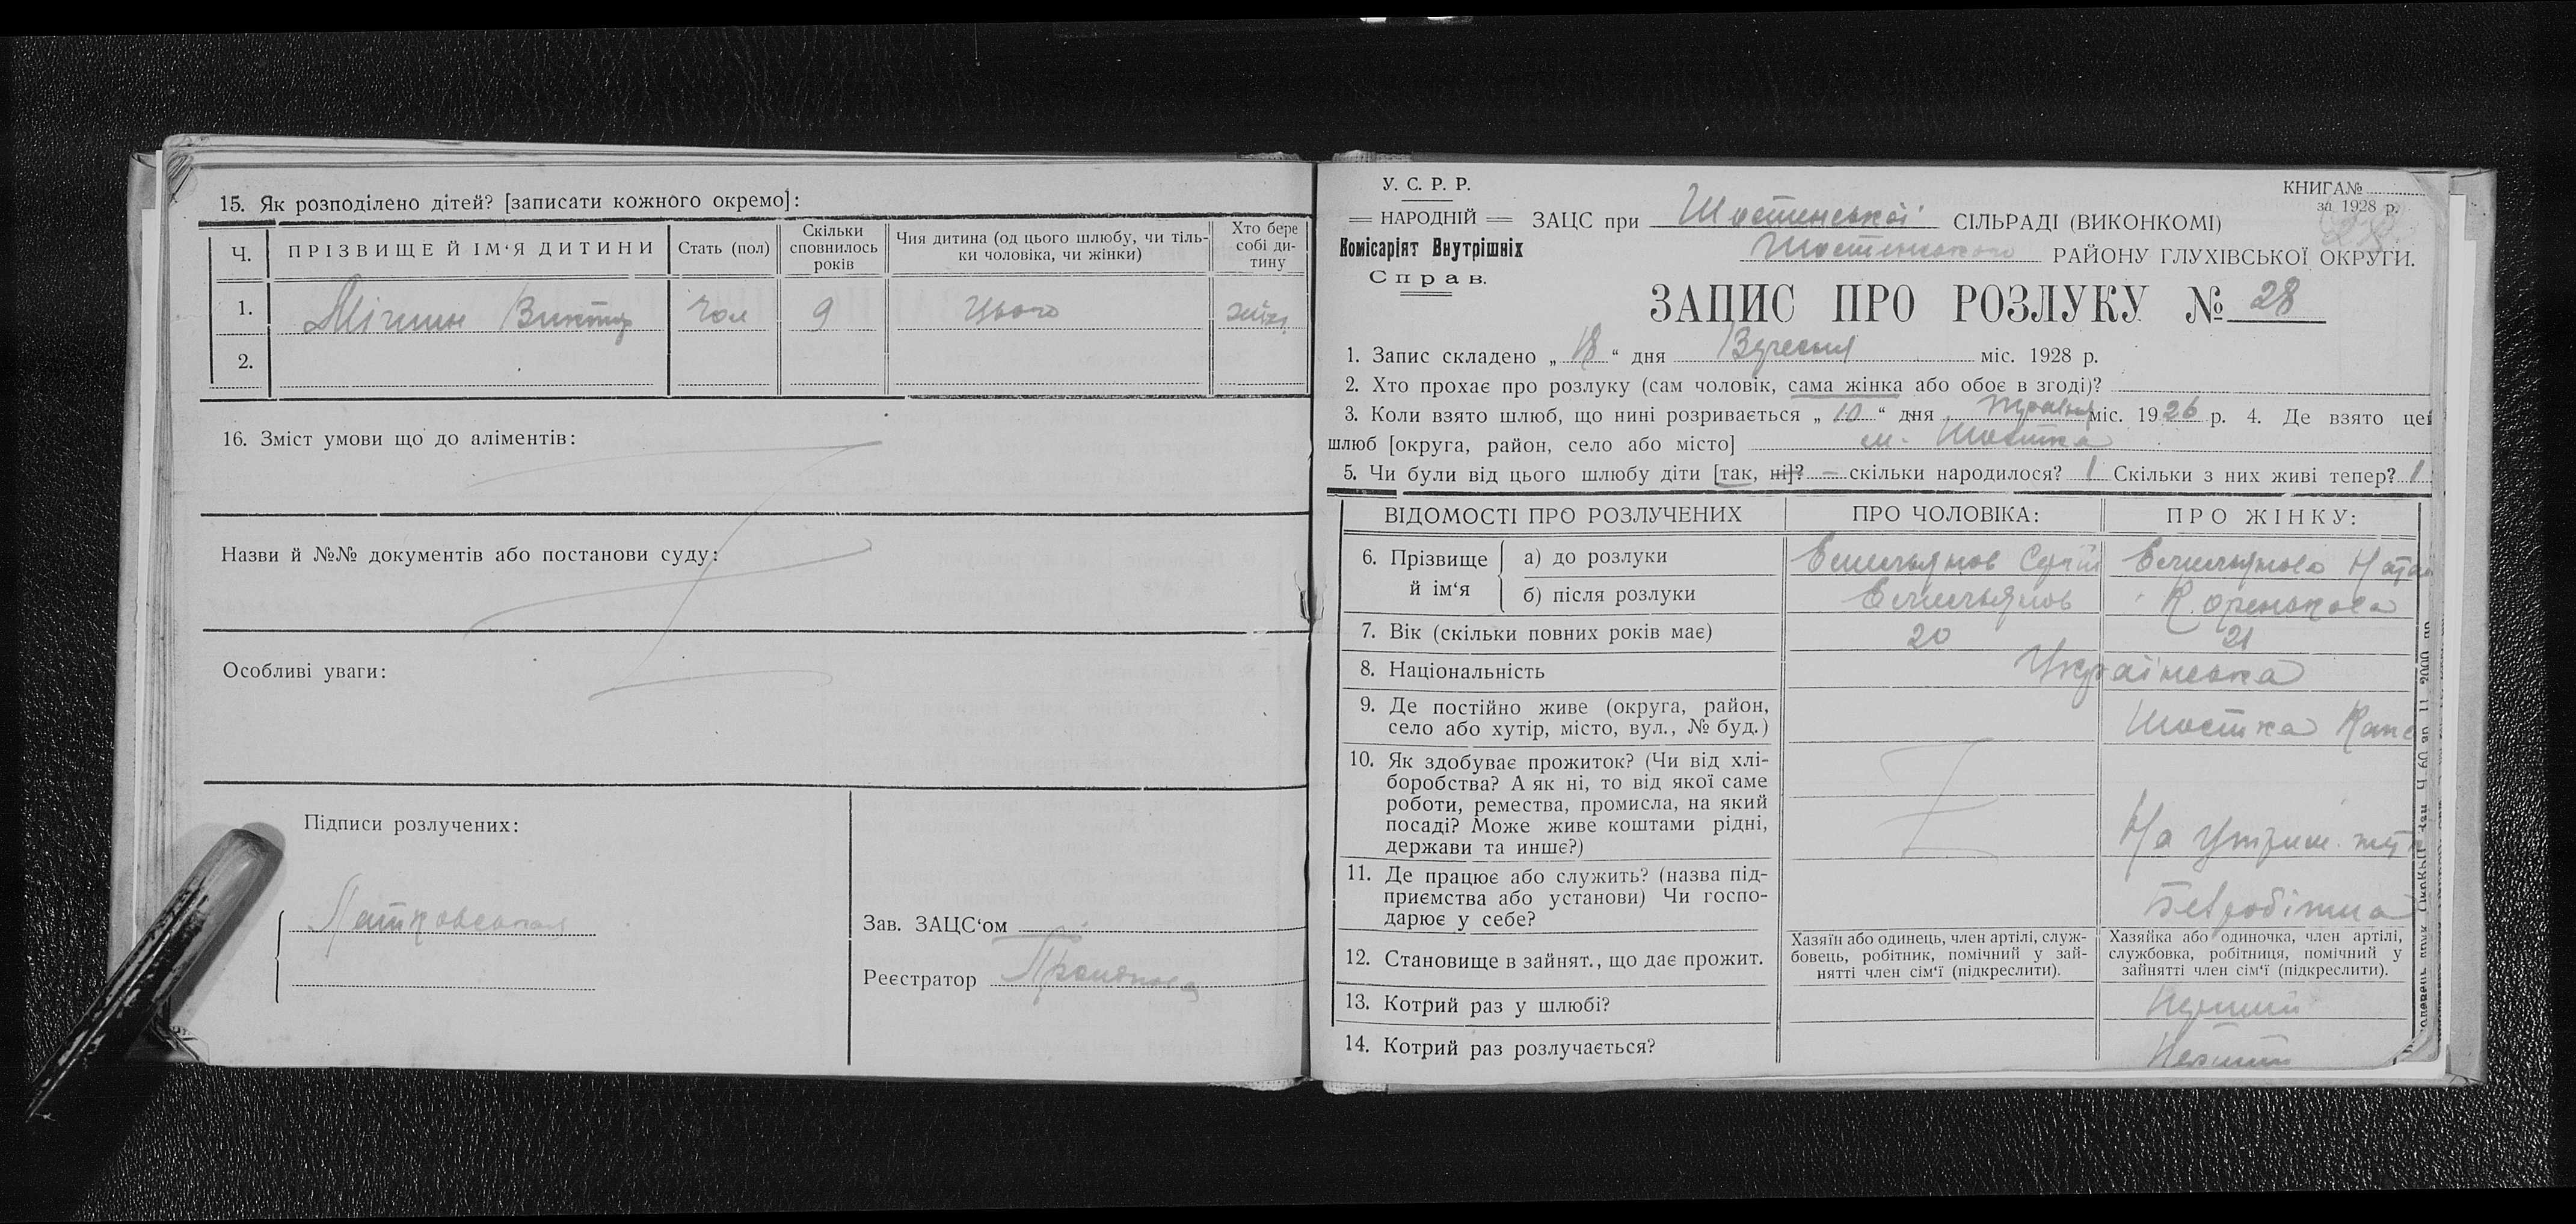 15. Як розподілено дітей? [записати кожного окремо]:
Ч. ПРІЗВИЩЕ Й ІМ‘Я ДИТИНИ Стать (пол) Скільки сповнилось років Чия дитина (од цього шлюбу, чи тіль-ки чоловіка, чи жінки) Хто бере собі ди-тину
1. Мігчин Виктор чол 9 Цього жінк
2.
16. Зміст умови що до аліментів:
Назви й №№ документів або постанови суду:
Особливі уваги:
Підписи розлучених:
Зав. ЗАЦС‘ом
Реєстратор
У. С. Р. Р.
НАРОДНІЙ
Комісаріят Внутрішніх
Справ.
КНИГА№
за 1928 р.
ЗАЦС при Шостинської СІЛЬРАДІ (ВИКОНКОМІ)
Шостинського РАЙОНУ ГЛУХІВСЬКОЇ ОКРУГИ.
ЗАПИС ПРО РОЗЛУКУ № 28
1. Запис складено „ 18 “ дня Вересня міс. 1928 р.
2. Хто прохає про розлуку (сам чоловік, сама жінка або обоє в згоді)?
3. Коли взято шлюб, що нині розривається „ 10 “ дня травня міс. 1926 р. 4. Де взято цей
шлюб [округа, район, село або місто] м. Шостка
5. Чи були від цього шлюбу діти [так, ні]? — скільки народилося? 1 Скільки з них живі тепер? 1
ВІДОМОСТІ ПРО РОЗЛУЧЕНИХ ПРО ЧОЛОВІКА: ПРО ЖІНКУ:
6. Прізвище й ім‘я а) до розлуки Емельянов Сергій Емельянова Натал
б) після розлуки Емельянов Коренькова
7. Вік (скільки повних років має) 20 21
8. Національність Українська
9. Де постійно живе (округа, район,
село або хутір, місто, вул., № буд.) Шостка
10. Як здобуває прожиток? (Чи від хлі-
боробства? А як ні, то від якої саме
роботи, ремества, промисла, на який
посаді? Може живе коштами рідні,
держави та инше?) На утрим.
11. Де працює або служить? (назва під-
приємства або установи) Чи госпо-
дарює у себе? Безробітна
12. Становище в зайнят., що дає прожит.
Хазяїн або одинець, член артілі, служ-
бовець, робітник, помічний у зай-
нятті член сім‘ї (підкреслити).
Хазяйка або одиночка, член артілі,
службовка, робітниця, помічний у
зайнятті член сім‘ї (підкреслити).
13. Котрий раз у шлюбі? перший
14. Котрий раз розлучається? перший